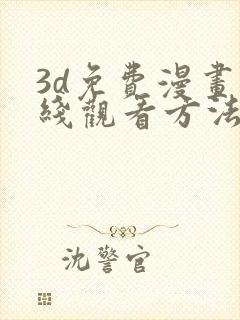 3d免費漫畫
綫觀看方法
沈警官